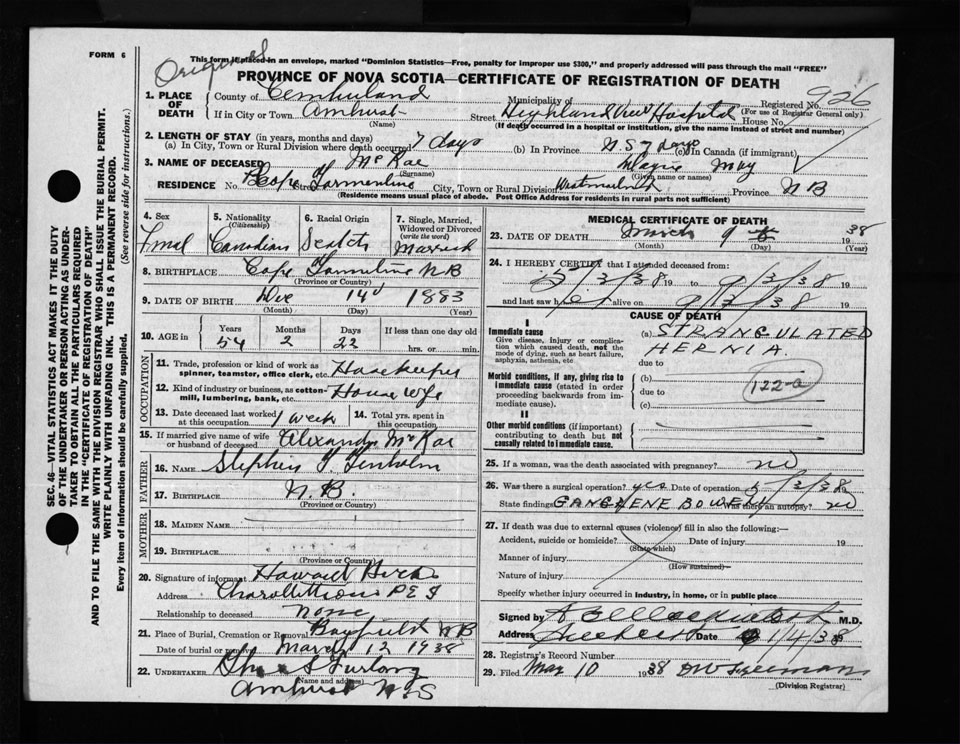 FORM 6
Original
This form if placed in an envelope, marked "Dominion Statistics—Free, penalty for improper use $300," and properly addressed will pass through the mail "FREE"
PROVINCE OF NOVA SCOTIA—CERTIFICATE OF REGISTRATION OF DEATH
926
1. PLACE OF DEATH
County of Cumberland Municipality of Registered No.
(For use of Registrar General only)
If in City or Town Amherst Street Highland View Hospital House No.
(Name) (If death occurred in a hospital or institution, give the name instead of street and number)
2. LENGTH OF STAY (in years, months and days)
(a) In City, Town or Rural Division where death occurred 7 days (b) In Province N.S 7 days (c) In Canada (if immigrant)
3. NAME OF DECEASED McRae May
(Surname) (Given name or names)
RESIDENCE No. Cape Tormentine Street City, Town or Rural Division Westmorland Province N B
(Residence means usual place of abode. Post Office Address for residents in rural parts not sufficient)
4. Sex
Fmal
5. Nationality (Citizenship)
Canadian
6. Racial Origin
Scotch
7. Single, Married, Widowed or Divorced (write the word)
Married
8. BIRTHPLACE Cape Tormentine N B
(Province or Country)
9. DATE OF BIRTH Dec 14 1883
(Month) (Day) (Year)
10. AGE in Years Months Days If less than one day old
54 2 22 hrs. or min.
OCCUPATION
11. Trade, profession or kind of work as spinner, teamster, office clerk, etc. Housekeeper
12. Kind of industry or business, as cotton-mill, lumbering, bank, etc. House wife
13. Date deceased last worked at this occupation 1 week
14. Total yrs. spent in this occupation
15. If married give name of wife or husband of deceased Alexander McRae
FATHER
16. NAME Stephen Y. Trenholm
17. BIRTHPLACE N.B.
(Province or Country)
MOTHER
18. MAIDEN NAME
19. BIRTHPLACE
(Province or Country)
20. Signature of informant Howard
Address Charlottetown P E I
Relationship to deceased None
21. Place of Burial, Cremation or Removal Bayfield N B
Date of burial or removal March 12 1938
22. UNDERTAKER S Furlong
(Name and address)
Amherst N.S
MEDICAL CERTIFICATE OF DEATH
23. DATE OF DEATH March 9 1938
(Month) (Day) (Year)
24. I HEREBY CERTIFY that I attended deceased from:
5/3/38 19 to 9/3/38 19
and last saw her alive on 9/3/38 19
CAUSE OF DEATH
I
Immediate cause
Give disease, injury or complication which caused death, not the mode of dying, such as heart failure, asphyxia, asthenia, etc.
(a) STRANGULATED
HERNIA
due to
Morbid conditions, if any, giving rise to immediate cause (stated in order proceeding backwards from immediate cause).
(b)
due to
122-a
(c)
II
Other morbid conditions (if important) contributing to death but not causally related to immediate cause.
25. If a woman, was the death associated with pregnancy? no
26. Was there a surgical operation? yes Date of operation 5/3/38
State findings GANGRENE BOWEL Was there an autopsy? no
27. If death was due to external causes (violence) fill in also the following:—
Accident, suicide or homicide? Date of injury 19
(State which)
Manner of injury
(How sustained)
Nature of injury
Specify whether injury occurred in industry, in home, or in public place
Signed by M.D.
Address Date 1/4/38
28. Registrar's Record Number
29. Filed May 10 1938
(Division Registrar)
SEC. 46—VITAL STATISTICS ACT MAKES IT THE DUTY
OF THE UNDERTAKER OR PERSON ACTING AS UNDER-
TAKER TO OBTAIN ALL THE PARTICULARS REQUIRED
IN THE "CERTIFICATE OF REGISTRATION OF DEATH"
AND TO FILE THE SAME WITH THE DIVISION REGISTRAR WHO SHALL ISSUE THE BURIAL PERMIT.
WRITE PLAINLY WITH UNFADING INK. THIS IS A PERMANENT RECORD.
Every item of information should be carefully supplied. (See reverse side for instructions.)